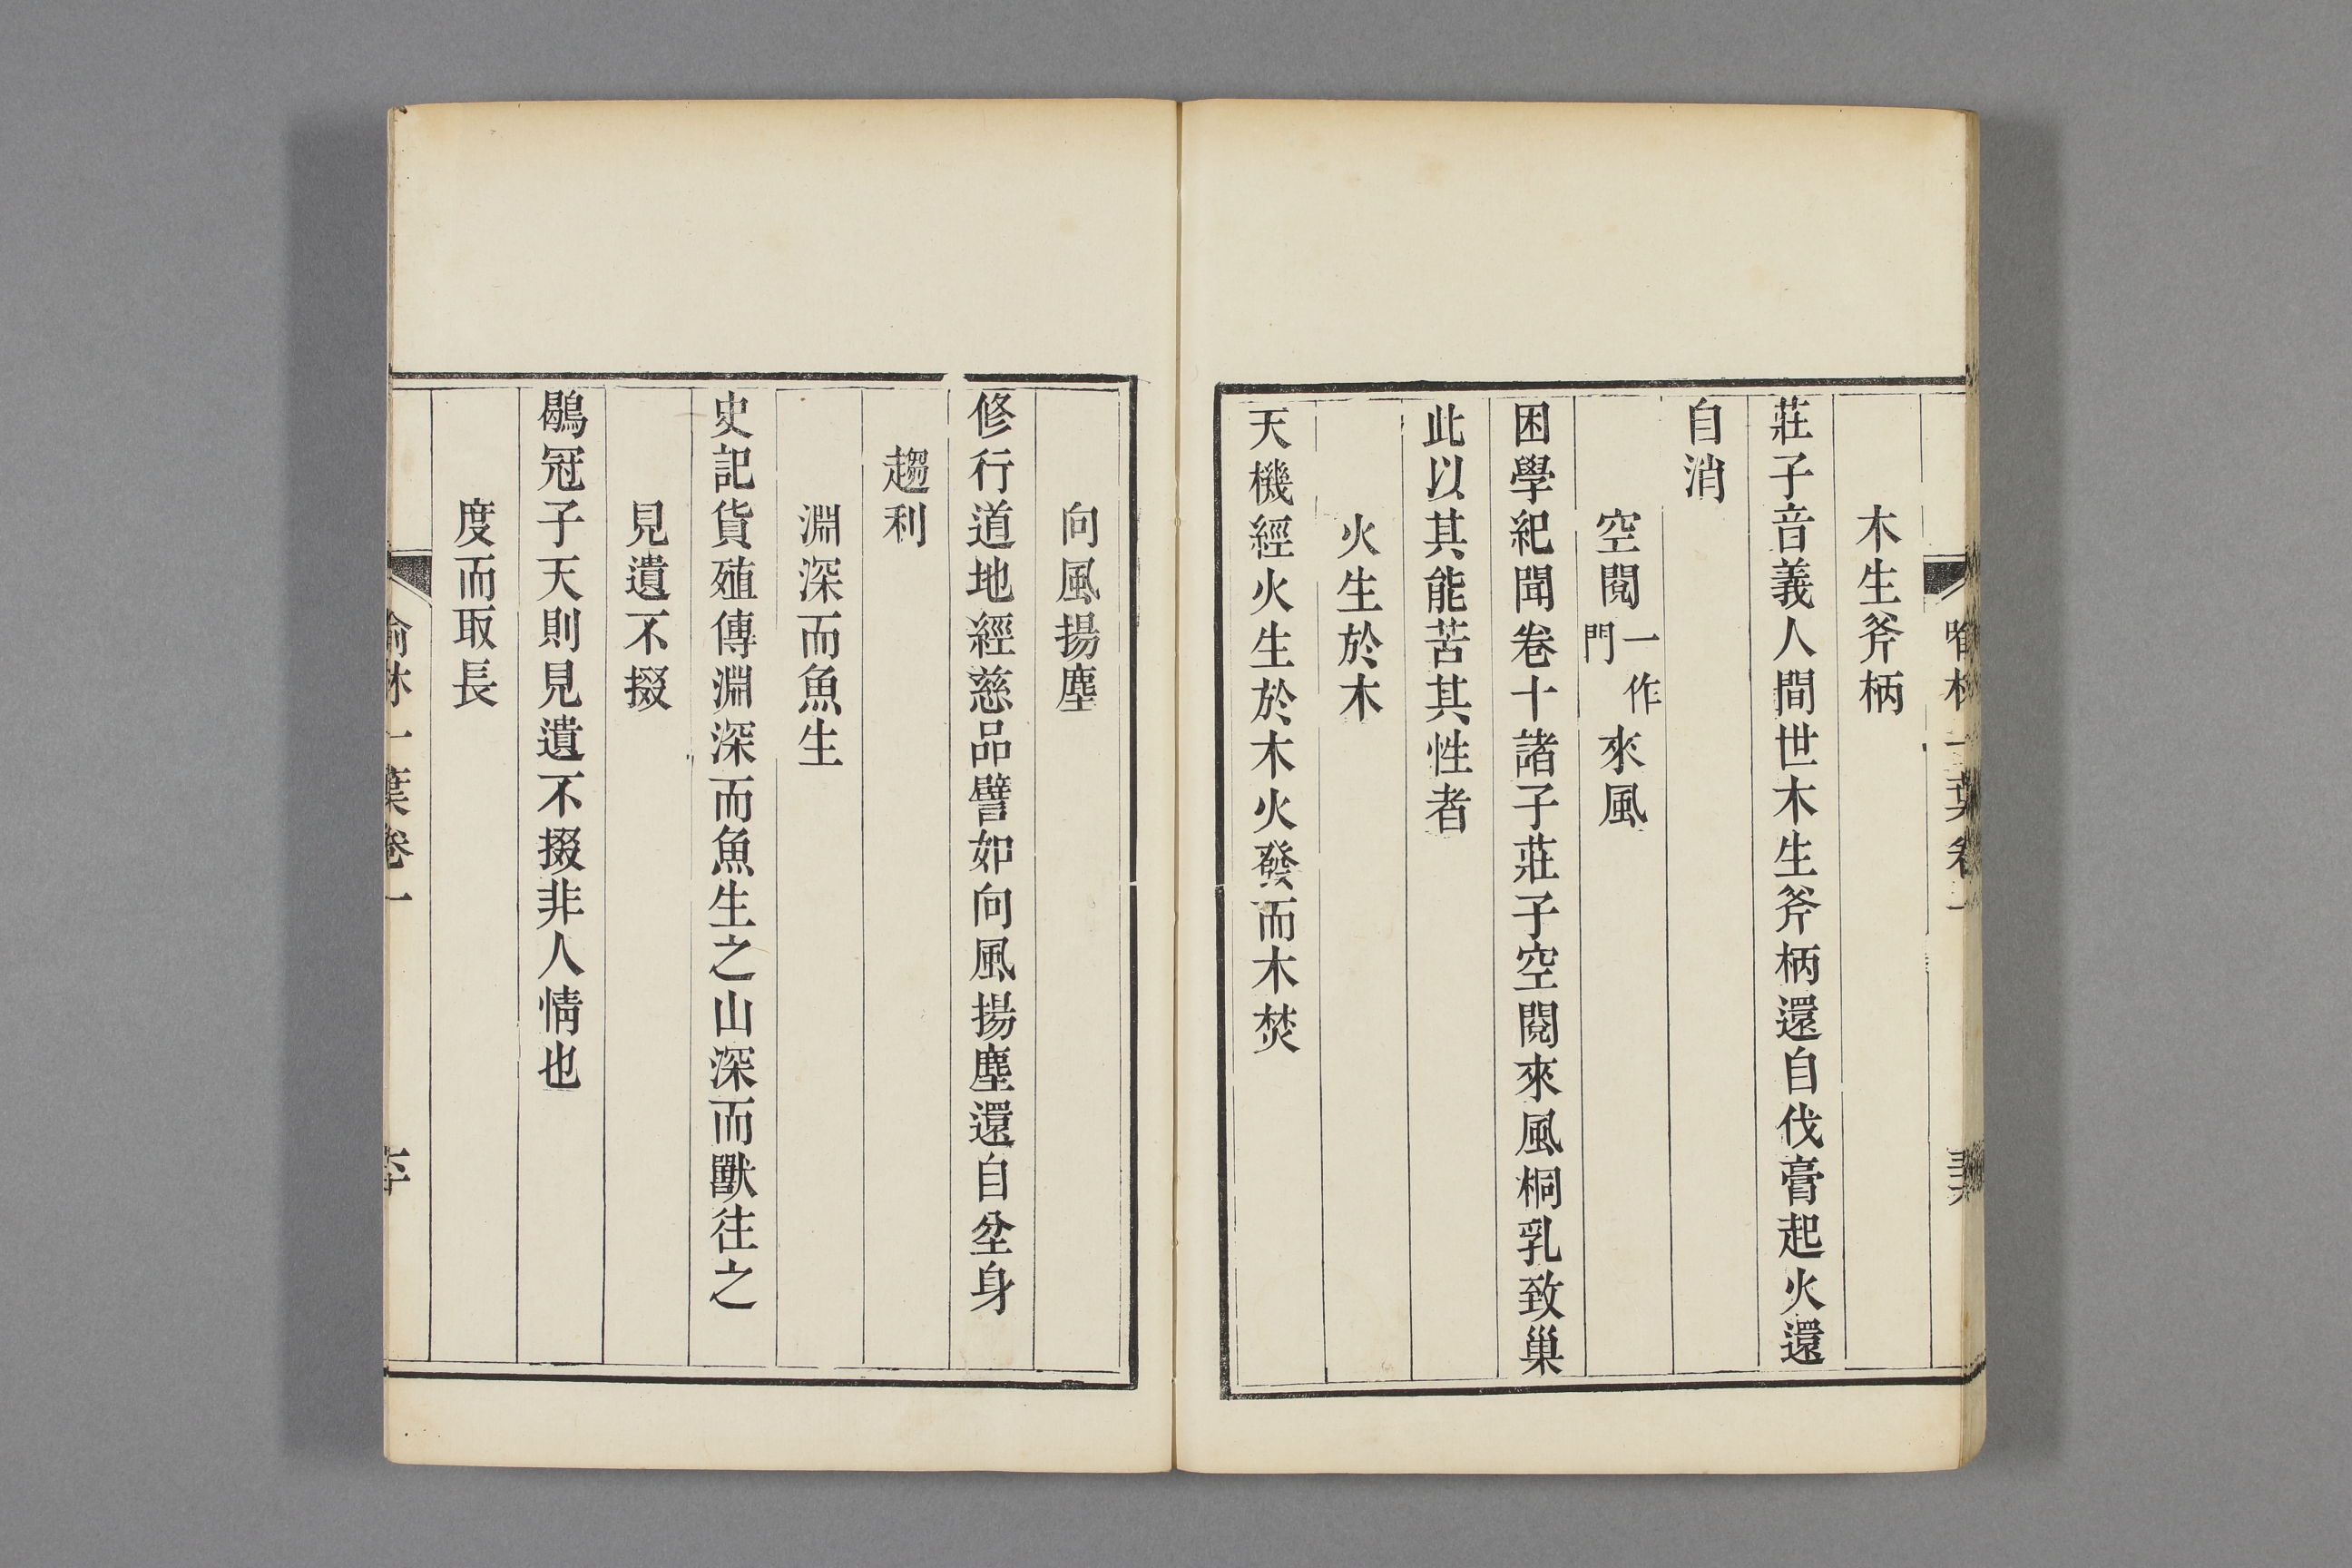 木生斧柄
莊子音義人間世木生斧柄還自伐膏起火還
自消
空閱一作門來風
困學紀聞卷十諸子莊子空閱來風桐乳致巢
此以其能苦其性者
火生於木
天機經火生於木火發而木焚
向風揚塵
修行道地經慈品譬如向風揚塵還自坌身
趨利
淵深而魚生
史記貨殖傳淵深而魚生之山深而獸往之
見遺不掇
鶡冠子天則見遺不掇非人情也
度而取長
喻林一葉卷一